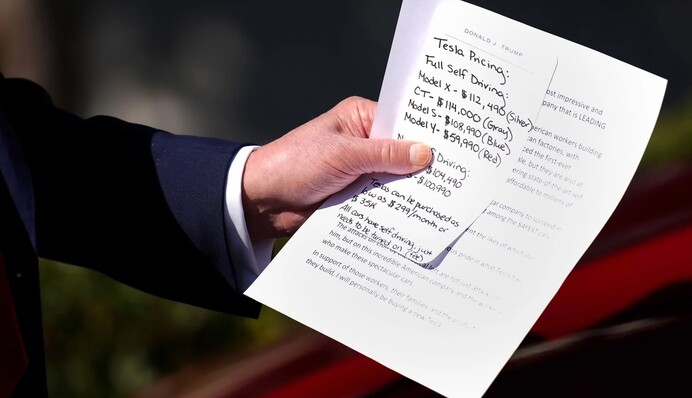 DONALD J. TRUMP
Tesla Pricing:
Full Self Driving:
Model X - $112,490 (Silver)
CT - $114,000 (Gray)
Model S - $108,990 (Blue)
Model Y - $59,990 (Red)
Driving:
$104,490
- $100,990
Teslas can be purchased as
low as $299/month or
$35K
All cars have self driving, just
needs to be turned on (fee)
ost impressive and
pany that is LEADING
erican workers building
an factories, with
ed the first-ever
le, but they are also at
ering state-of-the-art self
affordable to millions of
car company to succeed in
among the SAFEST
The attacks on
him, but on this incredible American company and the
who make these spectacular cars.
In support of those workers, their families, and the product
they build, I will personally be buying a new Tesla